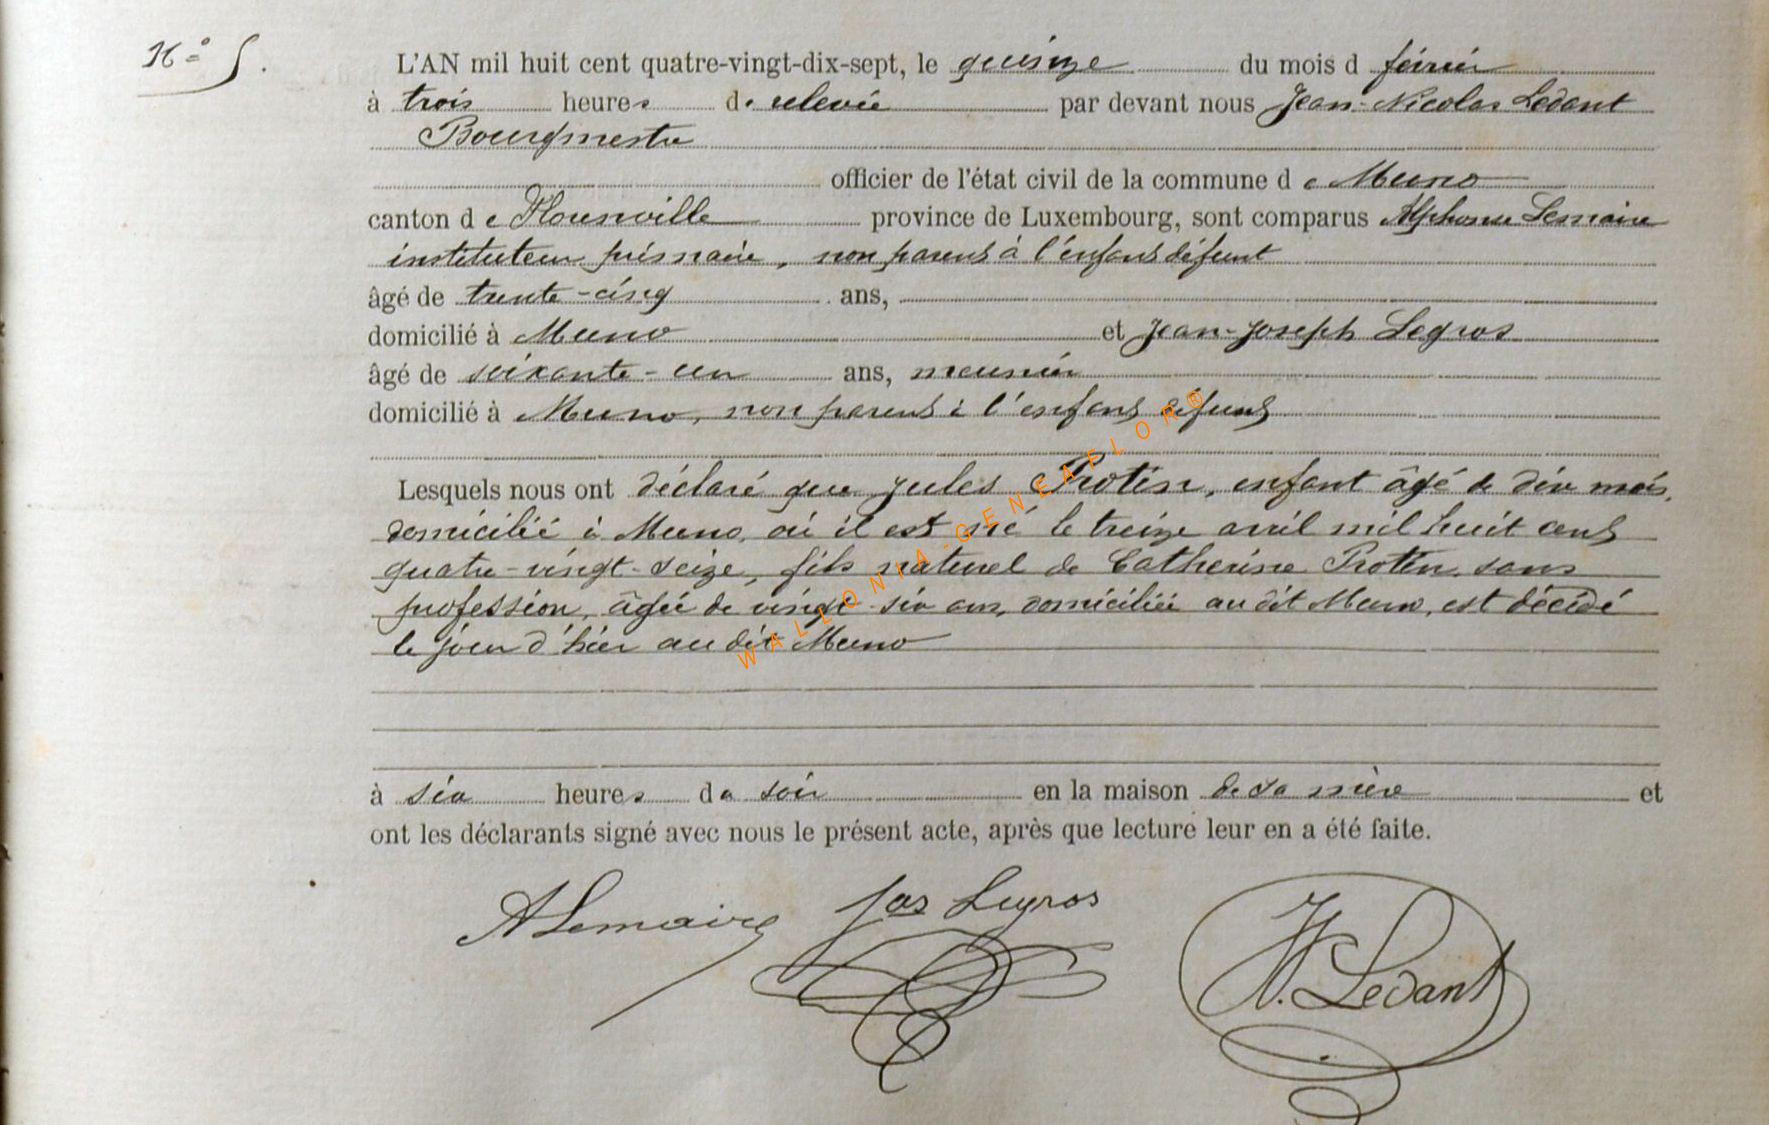 N° 5.
L'AN mil huit cent quatre-vingt-dix-sept, le quinze du mois d février
à trois heures de relevée par devant nous Jean-Nicolas Ledant
Bourgmestre
officier de l'état civil de la commune de Muno
canton de Florenville province de Luxembourg, sont comparus Alphonse Lemaire
instituteur primaire, non parent à l'enfant défunt
âgé de trente-cinq ans,
domicilié à Muno et Jean-Joseph Legros
âgé de soixante-un ans, meunier
domicilié à Muno, non parent à l'enfant défunt
Lesquels nous ont déclaré que Jules Protin, enfant âgé de dix mois,
domicilié à Muno, où il est né le treize avril mil huit cent
quatre-vingt-seize, fils naturel de Catherine Protin, sans
profession, âgée de vingt-six ans, domiciliée au dit Muno, est décédé
le jour d'hier au dit Muno
à six heures du soir en la maison de sa mère et
ont les déclarants signé avec nous le présent acte, après que lecture leur en a été faite.
ALemaire Jos Legros N. Ledant
WALLONIA-GENEAFLOR®